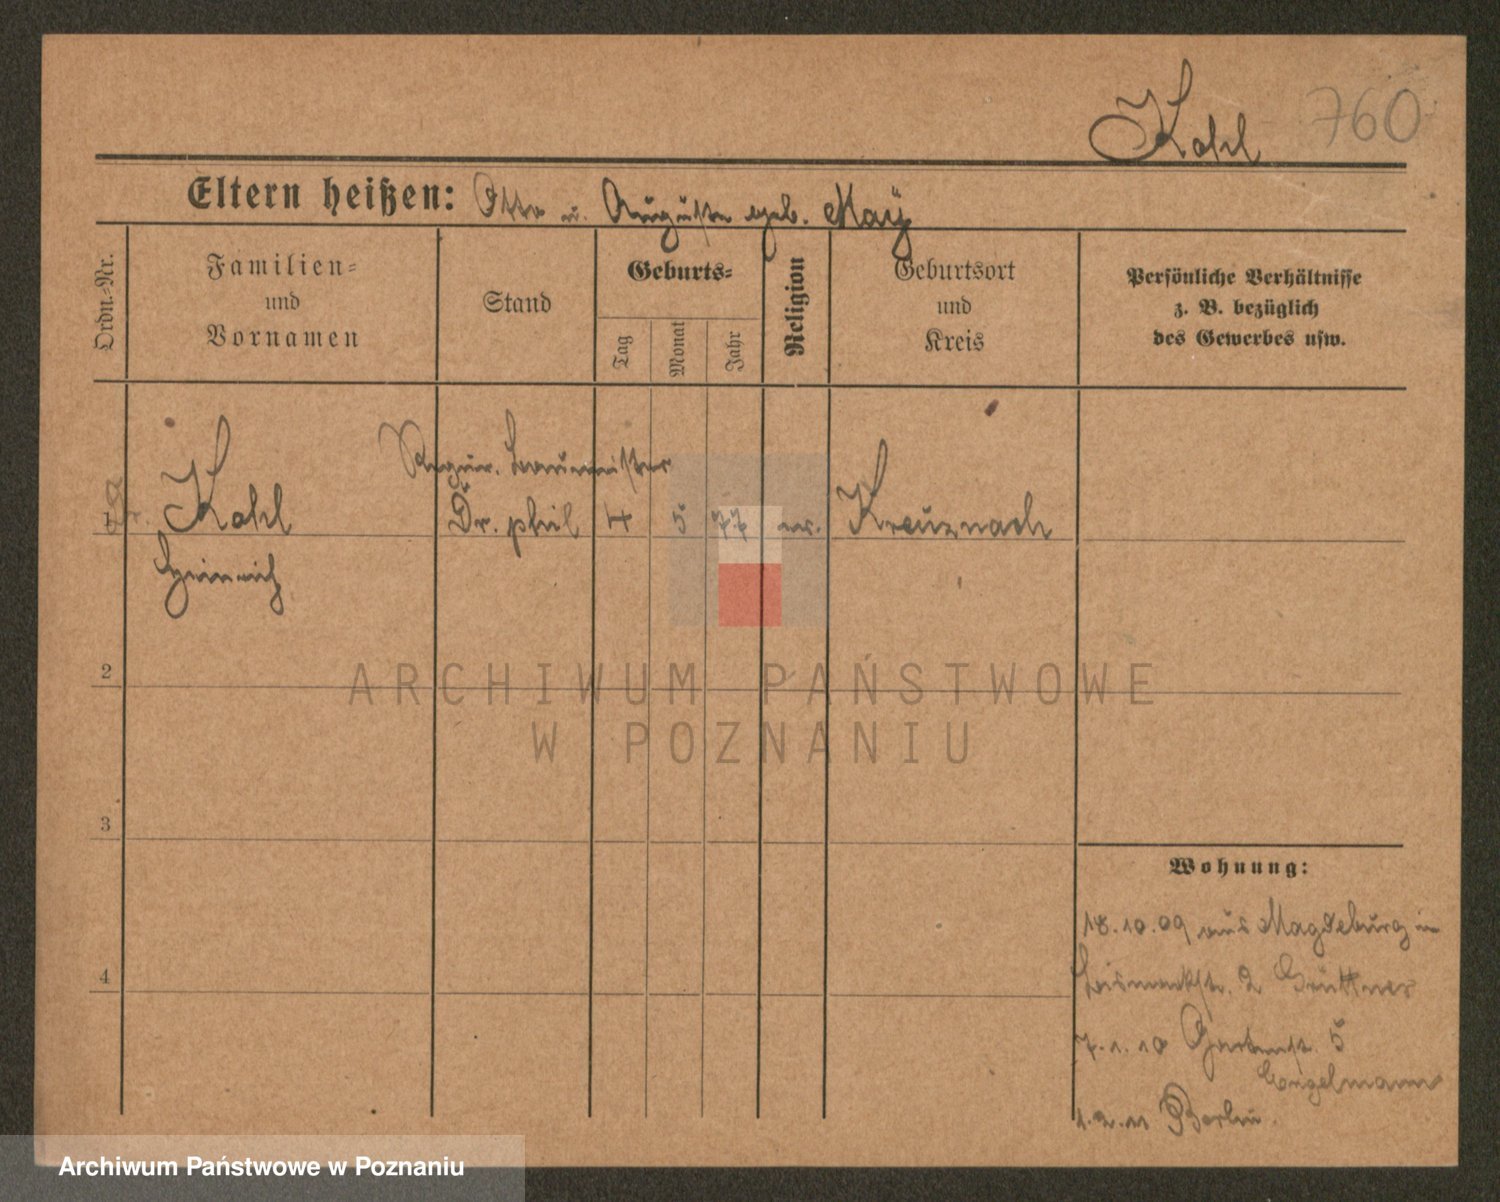 Kohl 760
Eltern heißen: Otto u. Auguste geb. Maÿ
Ordn.-Nr.
Familien-
und
Vornamen
Stand
Geburts-
Tag
Monat
Jahr
Religion
Geburtsort
und
Kreis
Persönliche Verhältnisse
z. B. bezüglich
des Gewerbes usw.
Regier. Baumeister
1 Kohl Dr. phil 4 5 77 ev. Kreuznach
Heinrich
2
ARCHIWUM PAŃSTWOWE
W POZNANIU
3
Wohnung:
18.10.09 aus Magdeburg in
Bismarckstr. 2 Grüttner
4
7.1.10 Gartenstr. 5
Engelmann
1.2.11 Berlin.
Archiwum Państwowe w Poznaniu